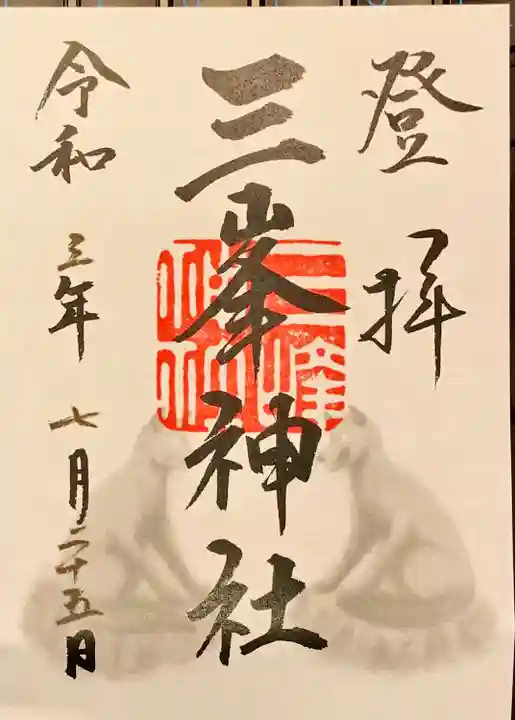 登拝
三峯神社
三峰神社
令和三年七月二十五日